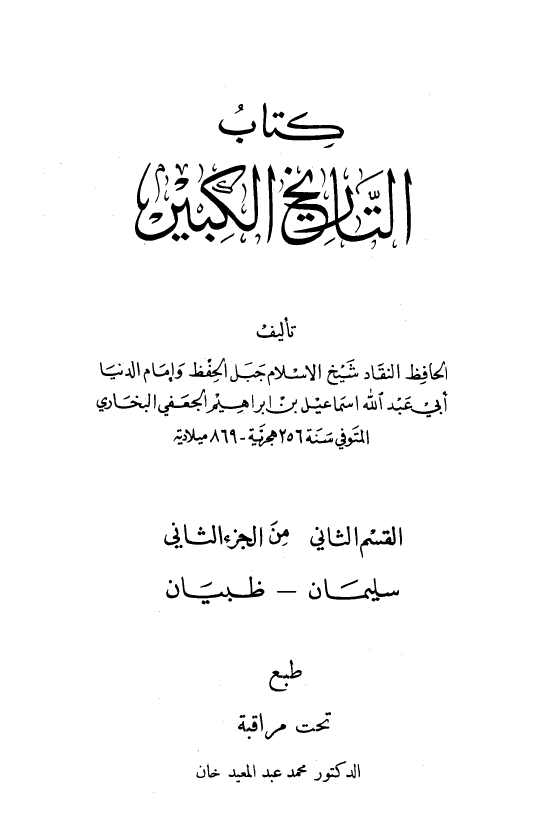 كتاب
التاريخ الكبير
تأليف
الحافظ النقاد شيخ الاسلام جبل الحفظ وإمام الدنيا
أبي عبد الله اسماعيل بن ابراهيم الجعفي البخاري
المتوفي سنة ٢٥٦ هجرية - ٨٦٩ ميلادية
القسم الثاني من الجزء الثاني
سليمان – ظبيان
طبع
تحت مراقبة
الدكتور محمد عبد المعيد خان